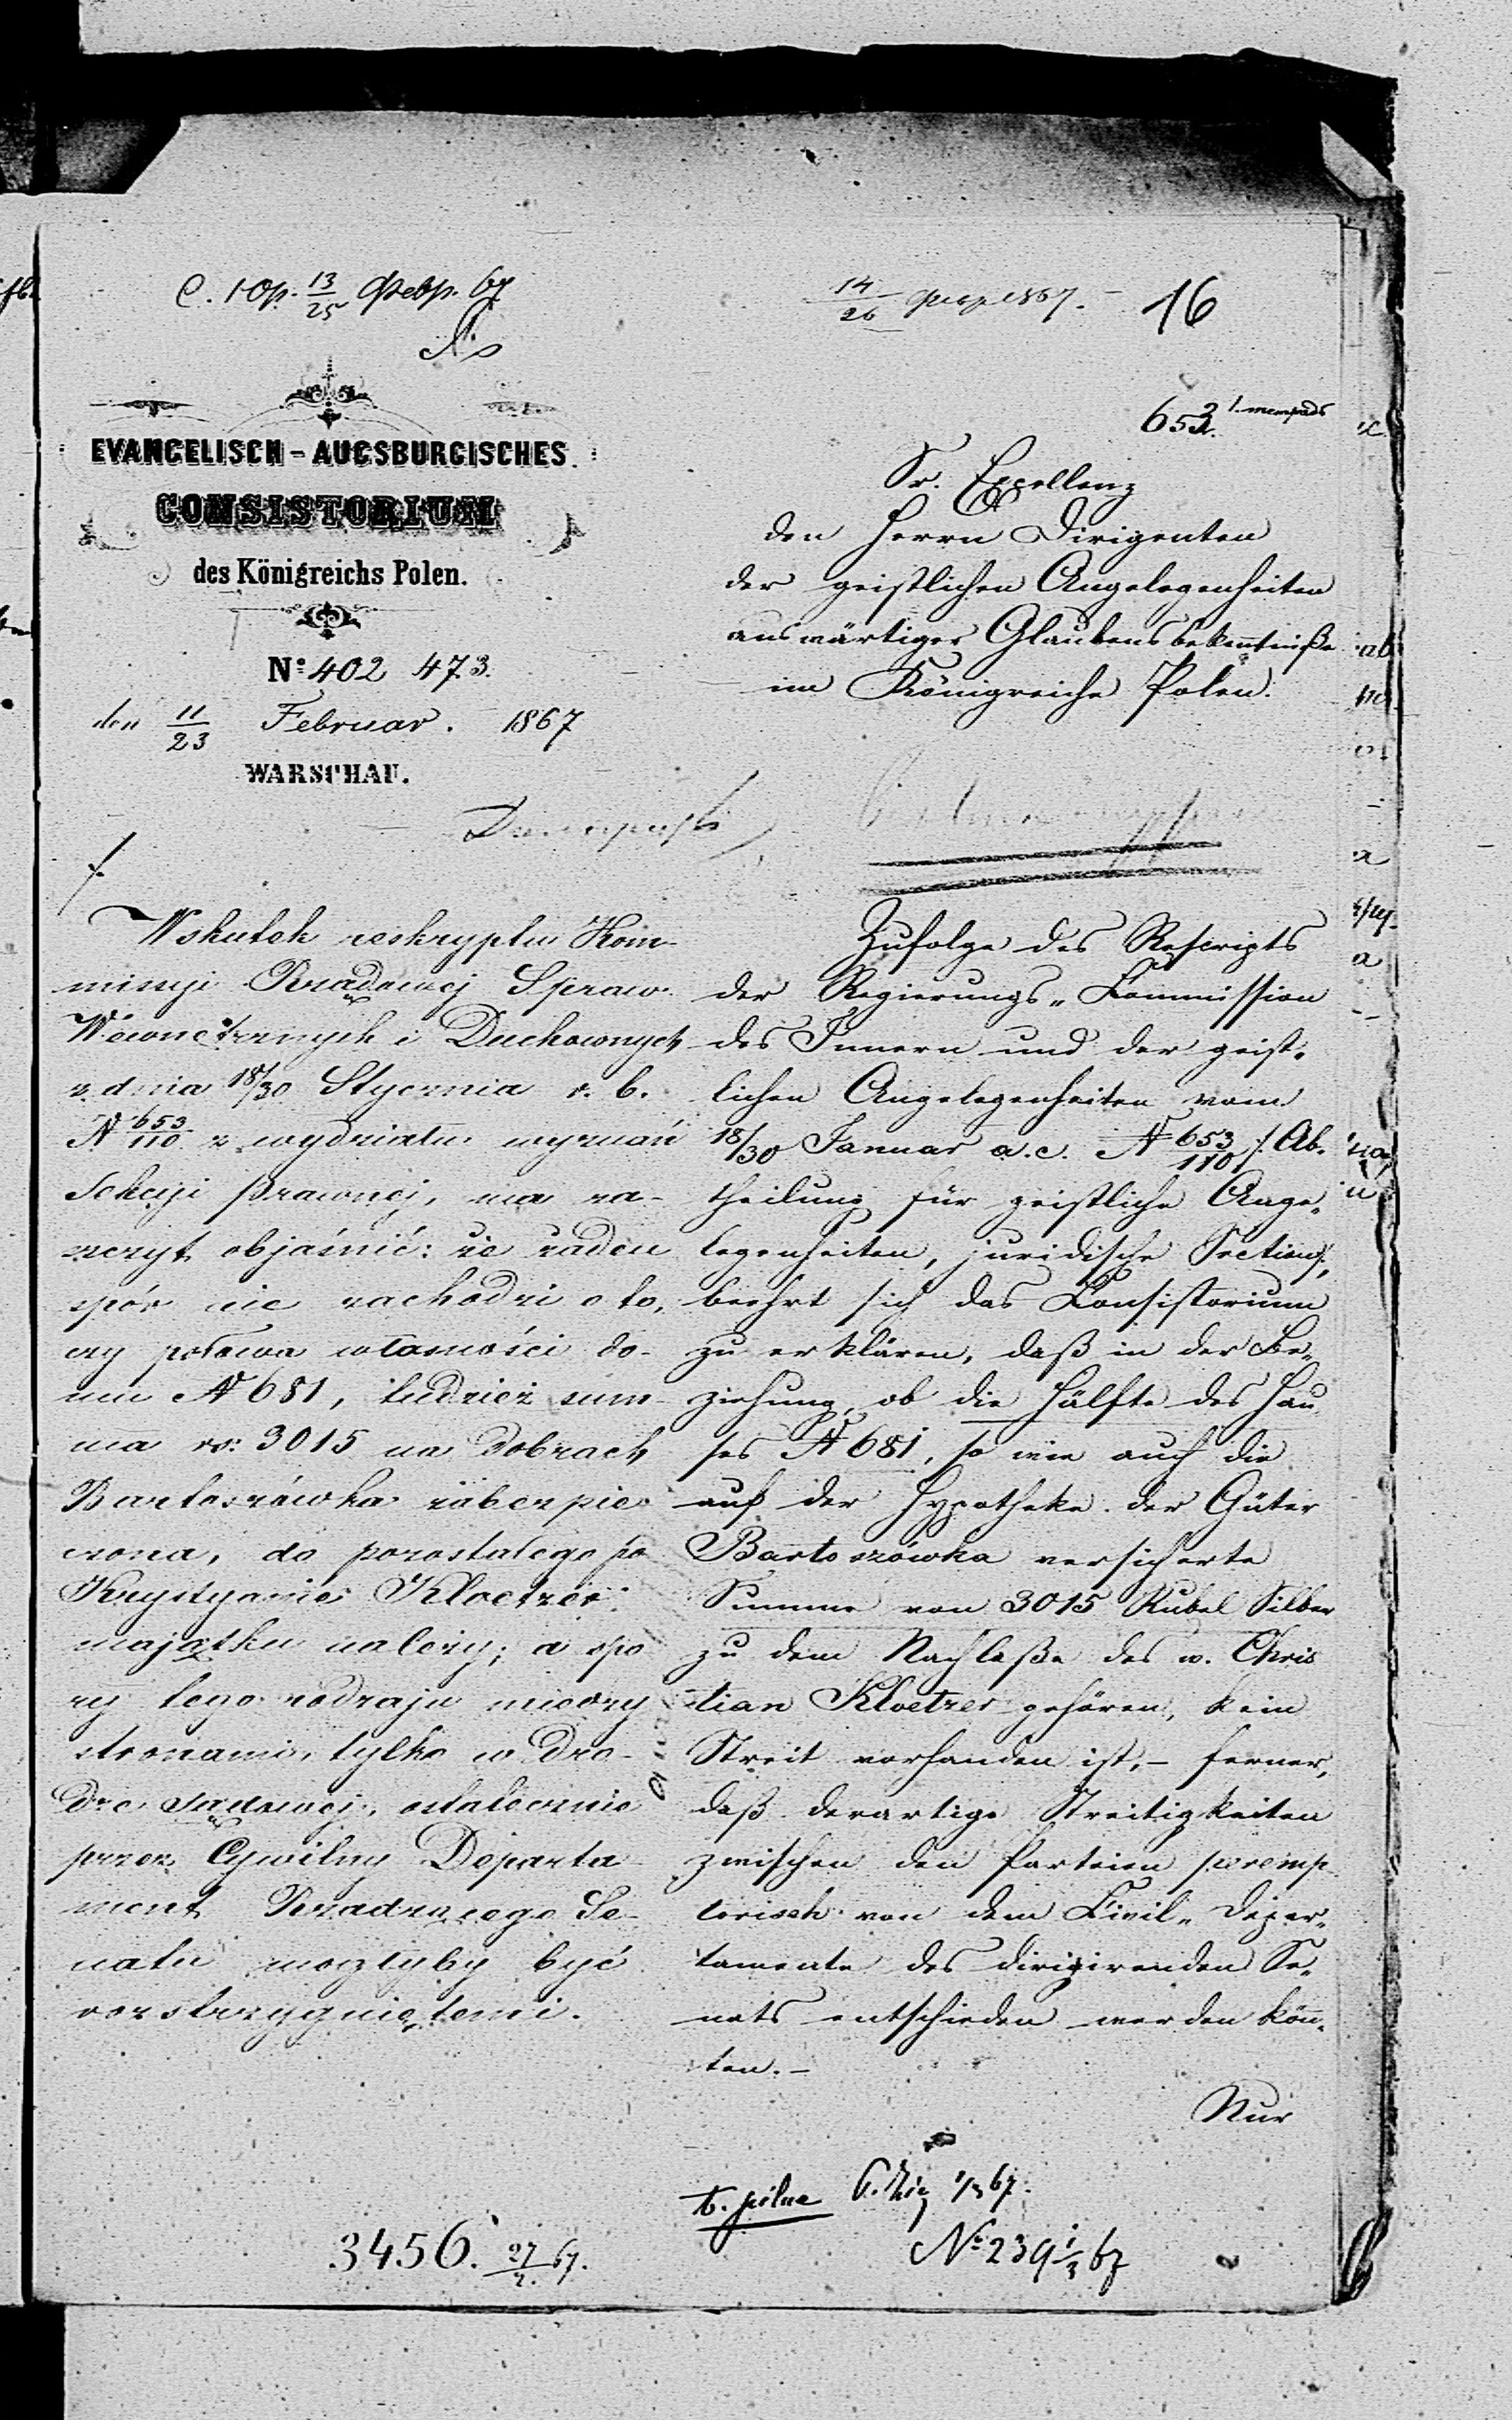 С. Юр. 13/25 Февр. 67
14/26 Февр 1867. — 16
EVANGELISCH-AUGSBURGISCHES
CONSISTORIUM
des Königreichs Polen.
No: 402 473.
den 11/23 Februar. 1867
WARSCHAU.
653.
Sr. Excellenz
den Herrn Dirigenten
der geistlichen Angelegenheiten
auswärtiger Glaubensbekenntniße
im Königreiche Polen.
Wskutek reskryptu Kom-
missyi Rządowej Spraw
Wewnętrznych i Duchownych
z dnia 18/30 Stycznia r. b.
N 653/110 z wydziału wyznań
Sekcyi prawnej, ma za-
szczyt objaśnić: że żaden
spór nie zachodzi o to,
czy połowa własności do-
mu N 681, tudzież sum-
ma rs: 3015 na dobrach
Bartoszówka zabezpie
czona, do pozostałego po
Krystyanie Kloetzer
majątku należy; a spo
ry tego rodzaju między
stronami, tylko w dro-
dze sądowej, ostatecznie
przez Cywilny Departa-
ment Rządzącego Se-
natu mogłyby być
rozstrzygniętemi.
Zufolge des Rescripts
der Regierungs-Commission
des Innern und der geist-
lichen Angelegenheiten vom
18/30 Januar a. c. N 653/110 /: Ab-
theilung für geistliche Ange-
legenheiten, juridische Section :/,
beehrt sich das Consistorium
zu erklären, daß in der Be-
ziehung, ob die Hälfte des Hau
ses N 681, so wie auch die
auf der Hypotheke der Güter
Bartoszówka versicherte
Summe von 3015 Rubel Silber
zu dem Nachlaße des w. Chris
tian Kloetzer gehören, kein
Streit vorhanden ist, – ferner,
daß derartige Streitigkeiten
zwischen den Parteien peremp
torisch von dem Civil-Depar-
tamente des dirigirenden Se-
nats entschieden werden könn-
ten. –
Nur
b. pilne 1/3 67.
3456. 27/2. 67.
No 239 1/3 67